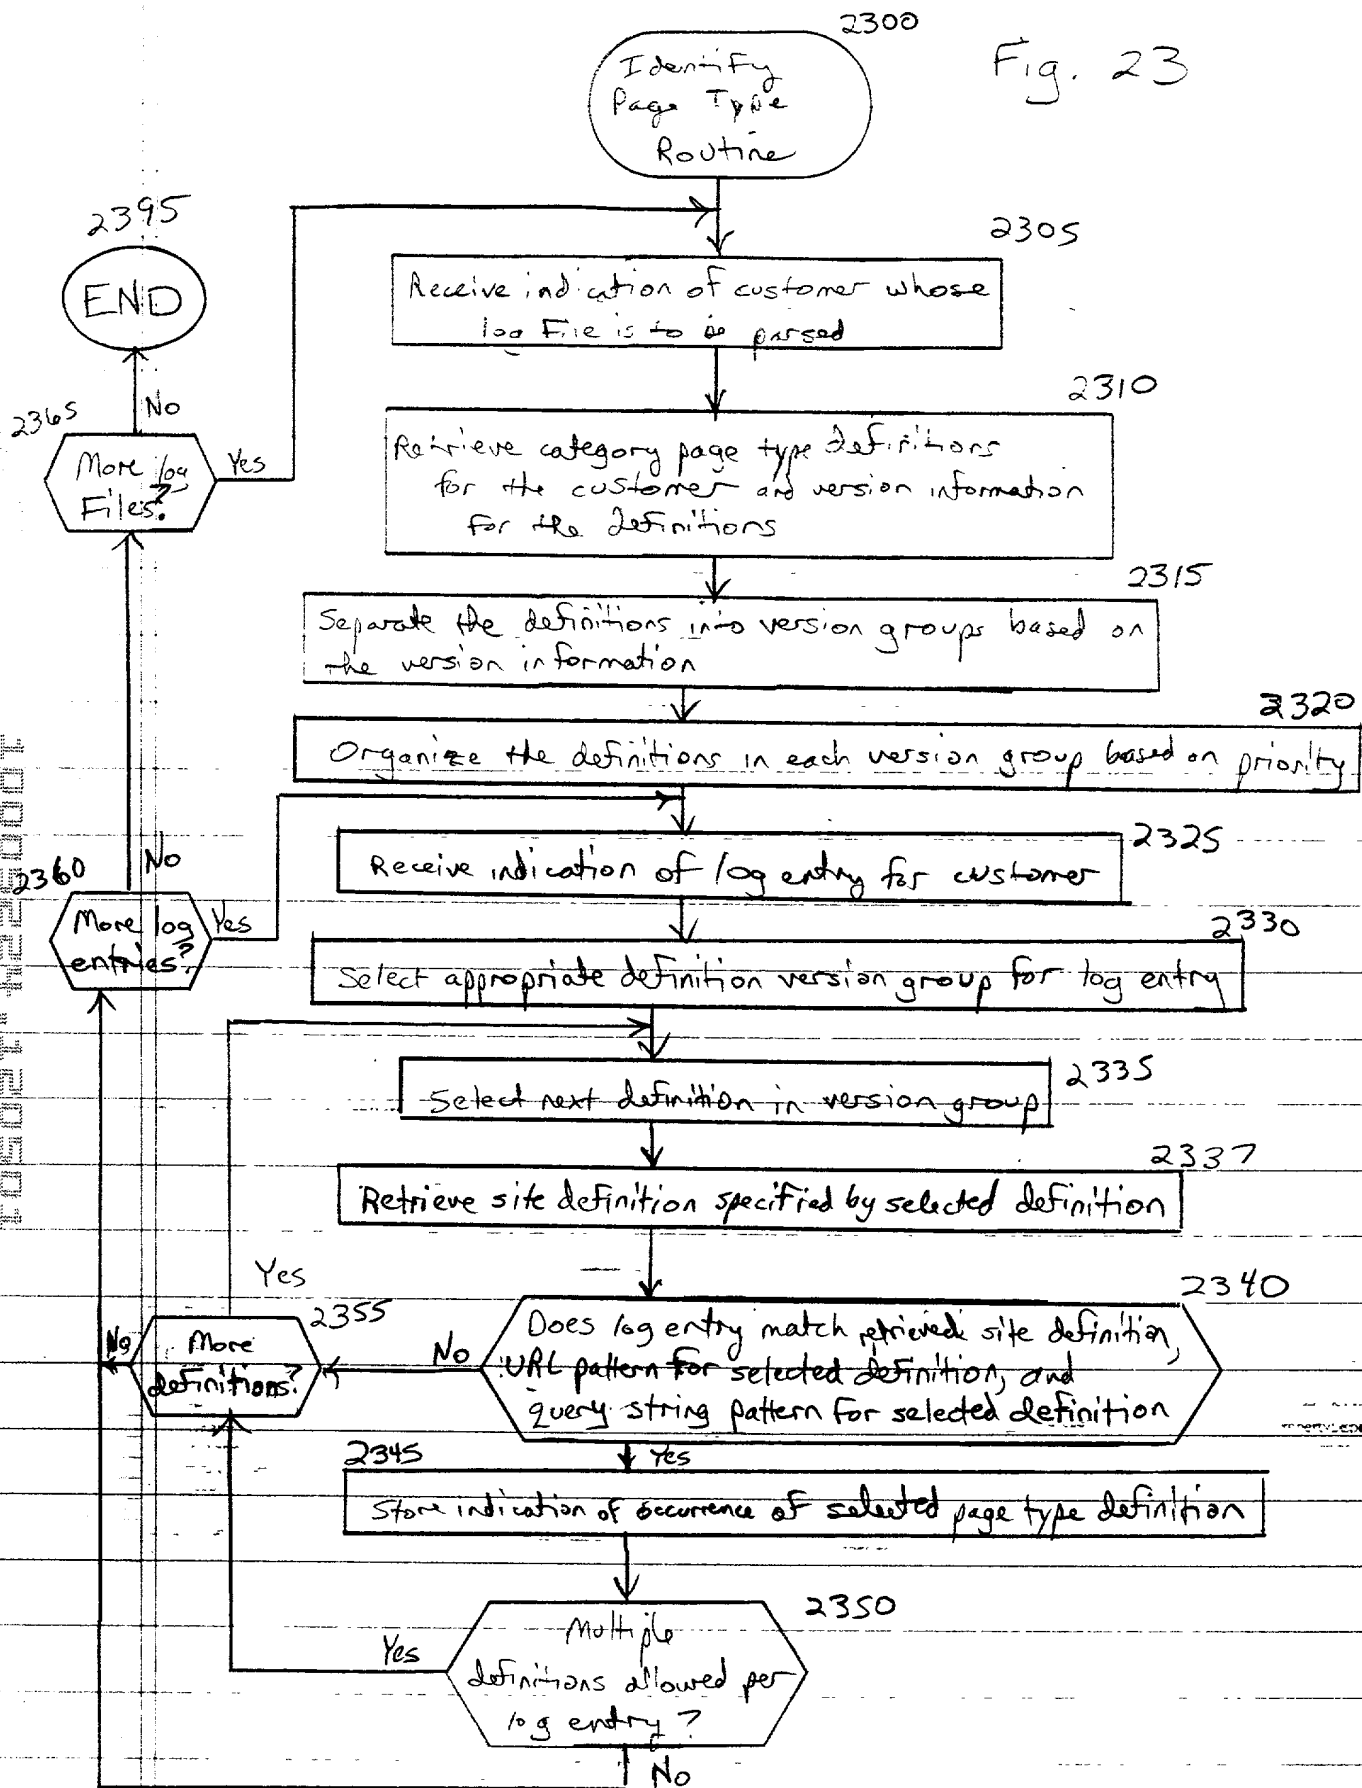 2300
Fig. 23
Identify
Page Type
Routine
2395
END
2305
Receive indication of customer whose
log File is to be parsed
No
2310
2365
More log
Files?
Yes
Retrieve category page type definitions
for the customer and version information
for the definitions
2315
Separate the definitions into version groups based on
the version information
2320
Organize the definitions in each version group based on priority
2325
Receive indication of log entry for customer
No
2360
More log
entries?
Yes
2330
Select appropriate definition version group for log entry
2335
Select next definition in version group
2337
Retrieve site definition specified by selected definition
Yes
2355
More
definitions?
No
No
2340
Does log entry match retrieved site definition,
URL pattern for selected definition, and
query string pattern for selected definition
Yes
2345
Store indication of occurrence of selected page type definition
2350
Multiple
definitions allowed per
log entry?
Yes
No